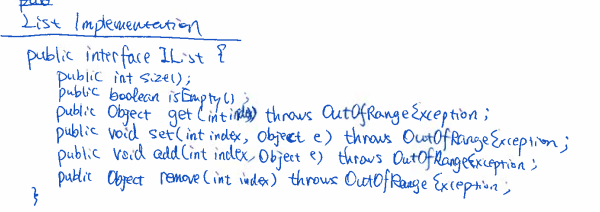 List Implementation
public interface IList {
public int size();
public boolean isEmpty();
public Object get(int index) throws OutOfRangeException;
public void set(int index, Object e) throws OutOfRangeException;
public void add(int index, Object e) throws OutOfRangeException;
public Object remove(int index) throws OutOfRange Exception;
}